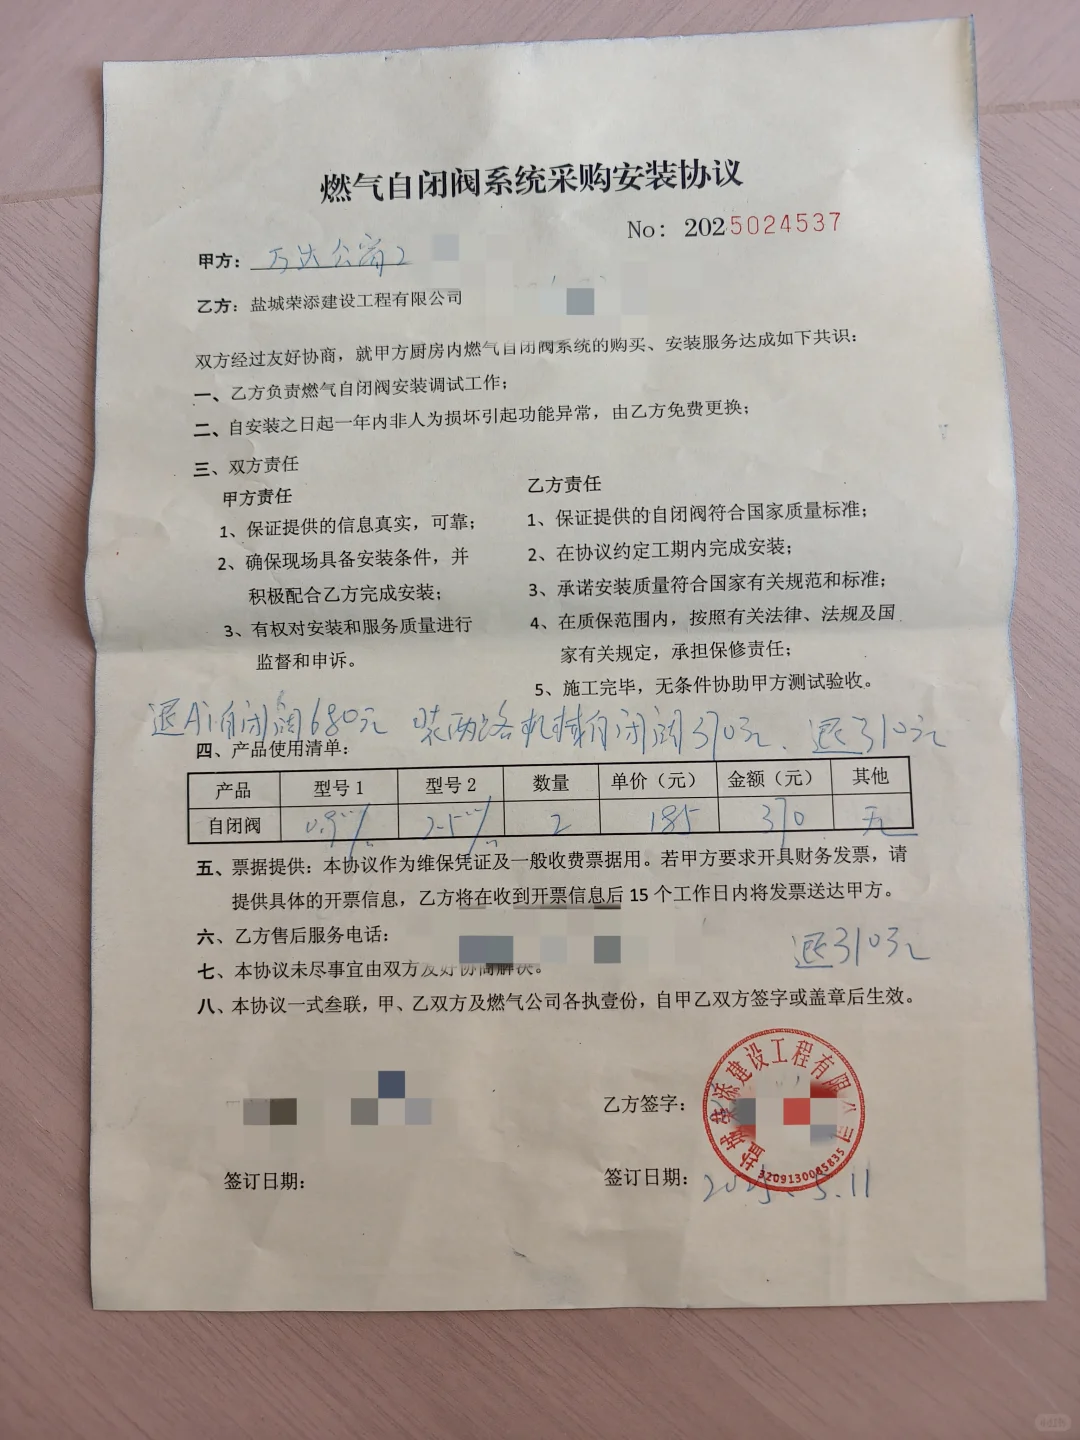 燃气自闭阀系统采购安装协议
No: 2025024537
甲方: 万达公寓2
乙方: 盐城荣添建设工程有限公司
双方经过友好协商，就甲方厨房内燃气自闭阀系统的购买、安装服务达成如下共识：
一、乙方负责燃气自闭阀安装调试工作；
二、自安装之日起一年内非人为损坏引起功能异常，由乙方免费更换；
三、双方责任
甲方责任
1、保证提供的信息真实，可靠；
2、确保现场具备安装条件，并
积极配合乙方完成安装；
3、有权对安装和服务质量进行
监督和申诉。
乙方责任
1、保证提供的自闭阀符合国家质量标准；
2、在协议约定工期内完成安装；
3、承诺安装质量符合国家有关规范和标准；
4、在质保范围内，按照有关法律、法规及国
家有关规定，承担保修责任；
5、施工完毕，无条件协助甲方测试验收。
退Ai自闭阀680元 装两路机械自闭阀370元、退310元
四、产品使用清单：
产品 型号1 型号2 数量 单价（元） 金额（元） 其他
自闭阀 2 185 370 无
五、票据提供：本协议作为维保凭证及一般收费票据用。若甲方要求开具财务发票，请
提供具体的开票信息，乙方将在收到开票信息后15个工作日内将发票送达甲方。
六、乙方售后服务电话：
退310元
七、本协议未尽事宜由双方友好协商解决。
八、本协议一式叁联，甲、乙双方及燃气公司各执壹份，自甲乙双方签字或盖章后生效。
乙方签字：
盐城荣添建设工程有限公司
3209130085835
签订日期：
签订日期： 2025.5.11